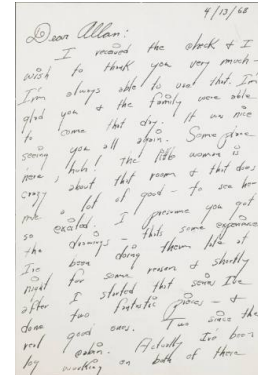 4/13/68
Dear Allan:
I received the check & I
wish to thank you very much -
I'm always able to use that. I'm
glad you & the family were able
to come that day. It was nice
seeing you all again. Some place
here, huh! The little woman is
crazy about that room & that does
me a lot of good - to see her
so excited. I presume you got
the drawings - thats some experience
I've been doing them late at
night for some reason & shortly
after I started that series I've
done two fntastic pieces - &
real good ones. Two since the
Actually I've been
working on both of these